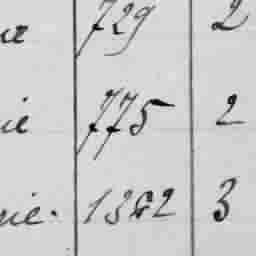 729 2
ie 775 2
nie. 1362 3